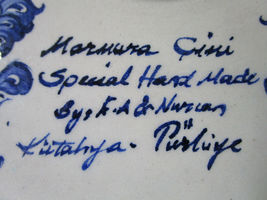 Marmara Çini
Special Hand Made
By, K.A & Nurcan
Kütahya - Türkiye